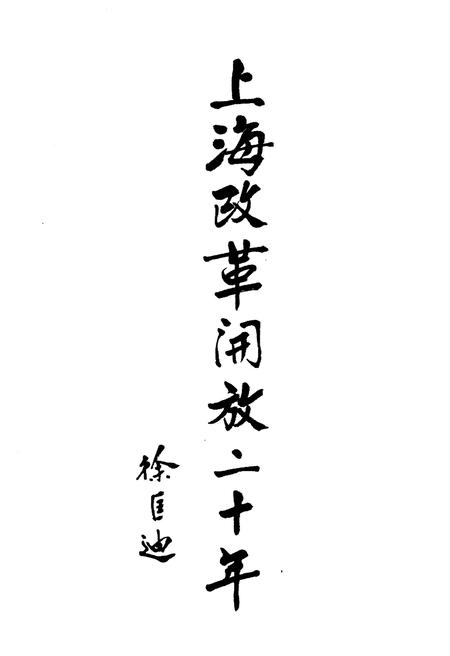 上海改革開放二十年
徐匡迪